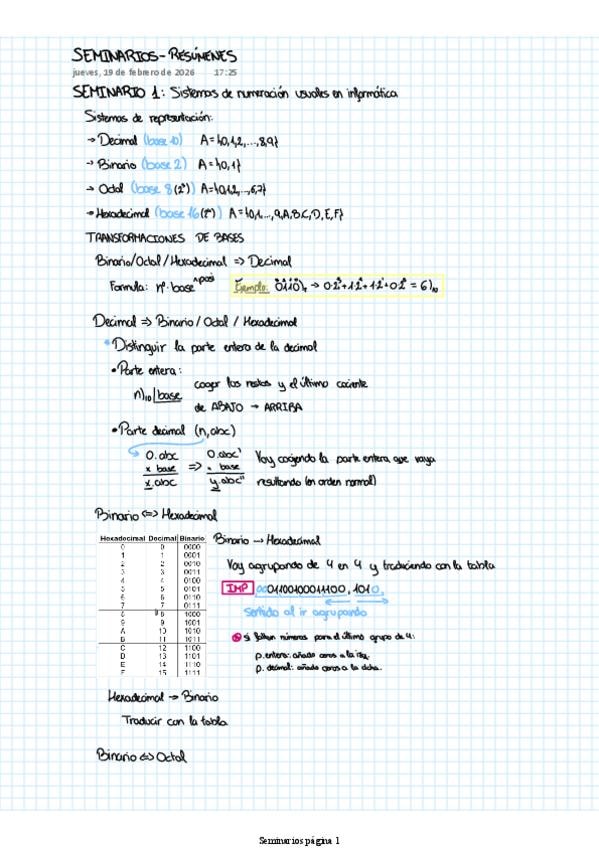 SEMINARIOS - RESÚMENES
jueves, 19 de febrero de 2026 17:25
SEMINARIO 1: Sistemas de numeración usuales en informática
Sistemas de representación:
→ Decimal (base 10) A={0,1,2,...,8,9}
→ Binario (base 2) A={0,1}
→ Octal (base 8(2³)) A={0,1,2,...,6,7}
→ Hexadecimal (base 16(2⁴)) A={0,1,...,9,A,B,C,D,E,F}
TRANSFORMACIONES DE BASES
Binario/Octal/Hexadecimal => Decimal
Formula: nº·base^posi Ejemplo: 0110)₂ → 0·2³+1·2²+1·2¹+0·2⁰ = 6)₁₀
Decimal => Binario/Octal/Hexadecimal
* Distinguir la parte entera de la decimal
• Parte entera:
n)₁₀ | base coger los restos y el último cociente
de ABAJO → ARRIBA
• Parte decimal (n,abc)
0.abc 0.abc'
x base => x base Voy cogiendo la parte entera que vaya
x.abc y.abc'' resultando (en orden normal)
Binario <=> Hexadecimal
Hexadecimal Decimal Binario
0 0 0000
1 1 0001
2 2 0010
3 3 0011
4 4 0100
5 5 0101
6 6 0110
7 7 0111
8 8 1000
9 9 1001
A 10 1010
B 11 1011
C 12 1100
D 13 1101
E 14 1110
F 15 1111
Binario → Hexadecimal
Voy agrupando de 4 en 4 y traduciendo con la tabla
IMP
Sentido al ir agrupando
si faltan números para el último grupo de 4:
p. entera: añado ceros a la izq.
p. decimal: añado ceros a la dcha.
Hexadecimal → Binario
Traducir con la tabla
Binario <=> Octal
Seminarios página 1